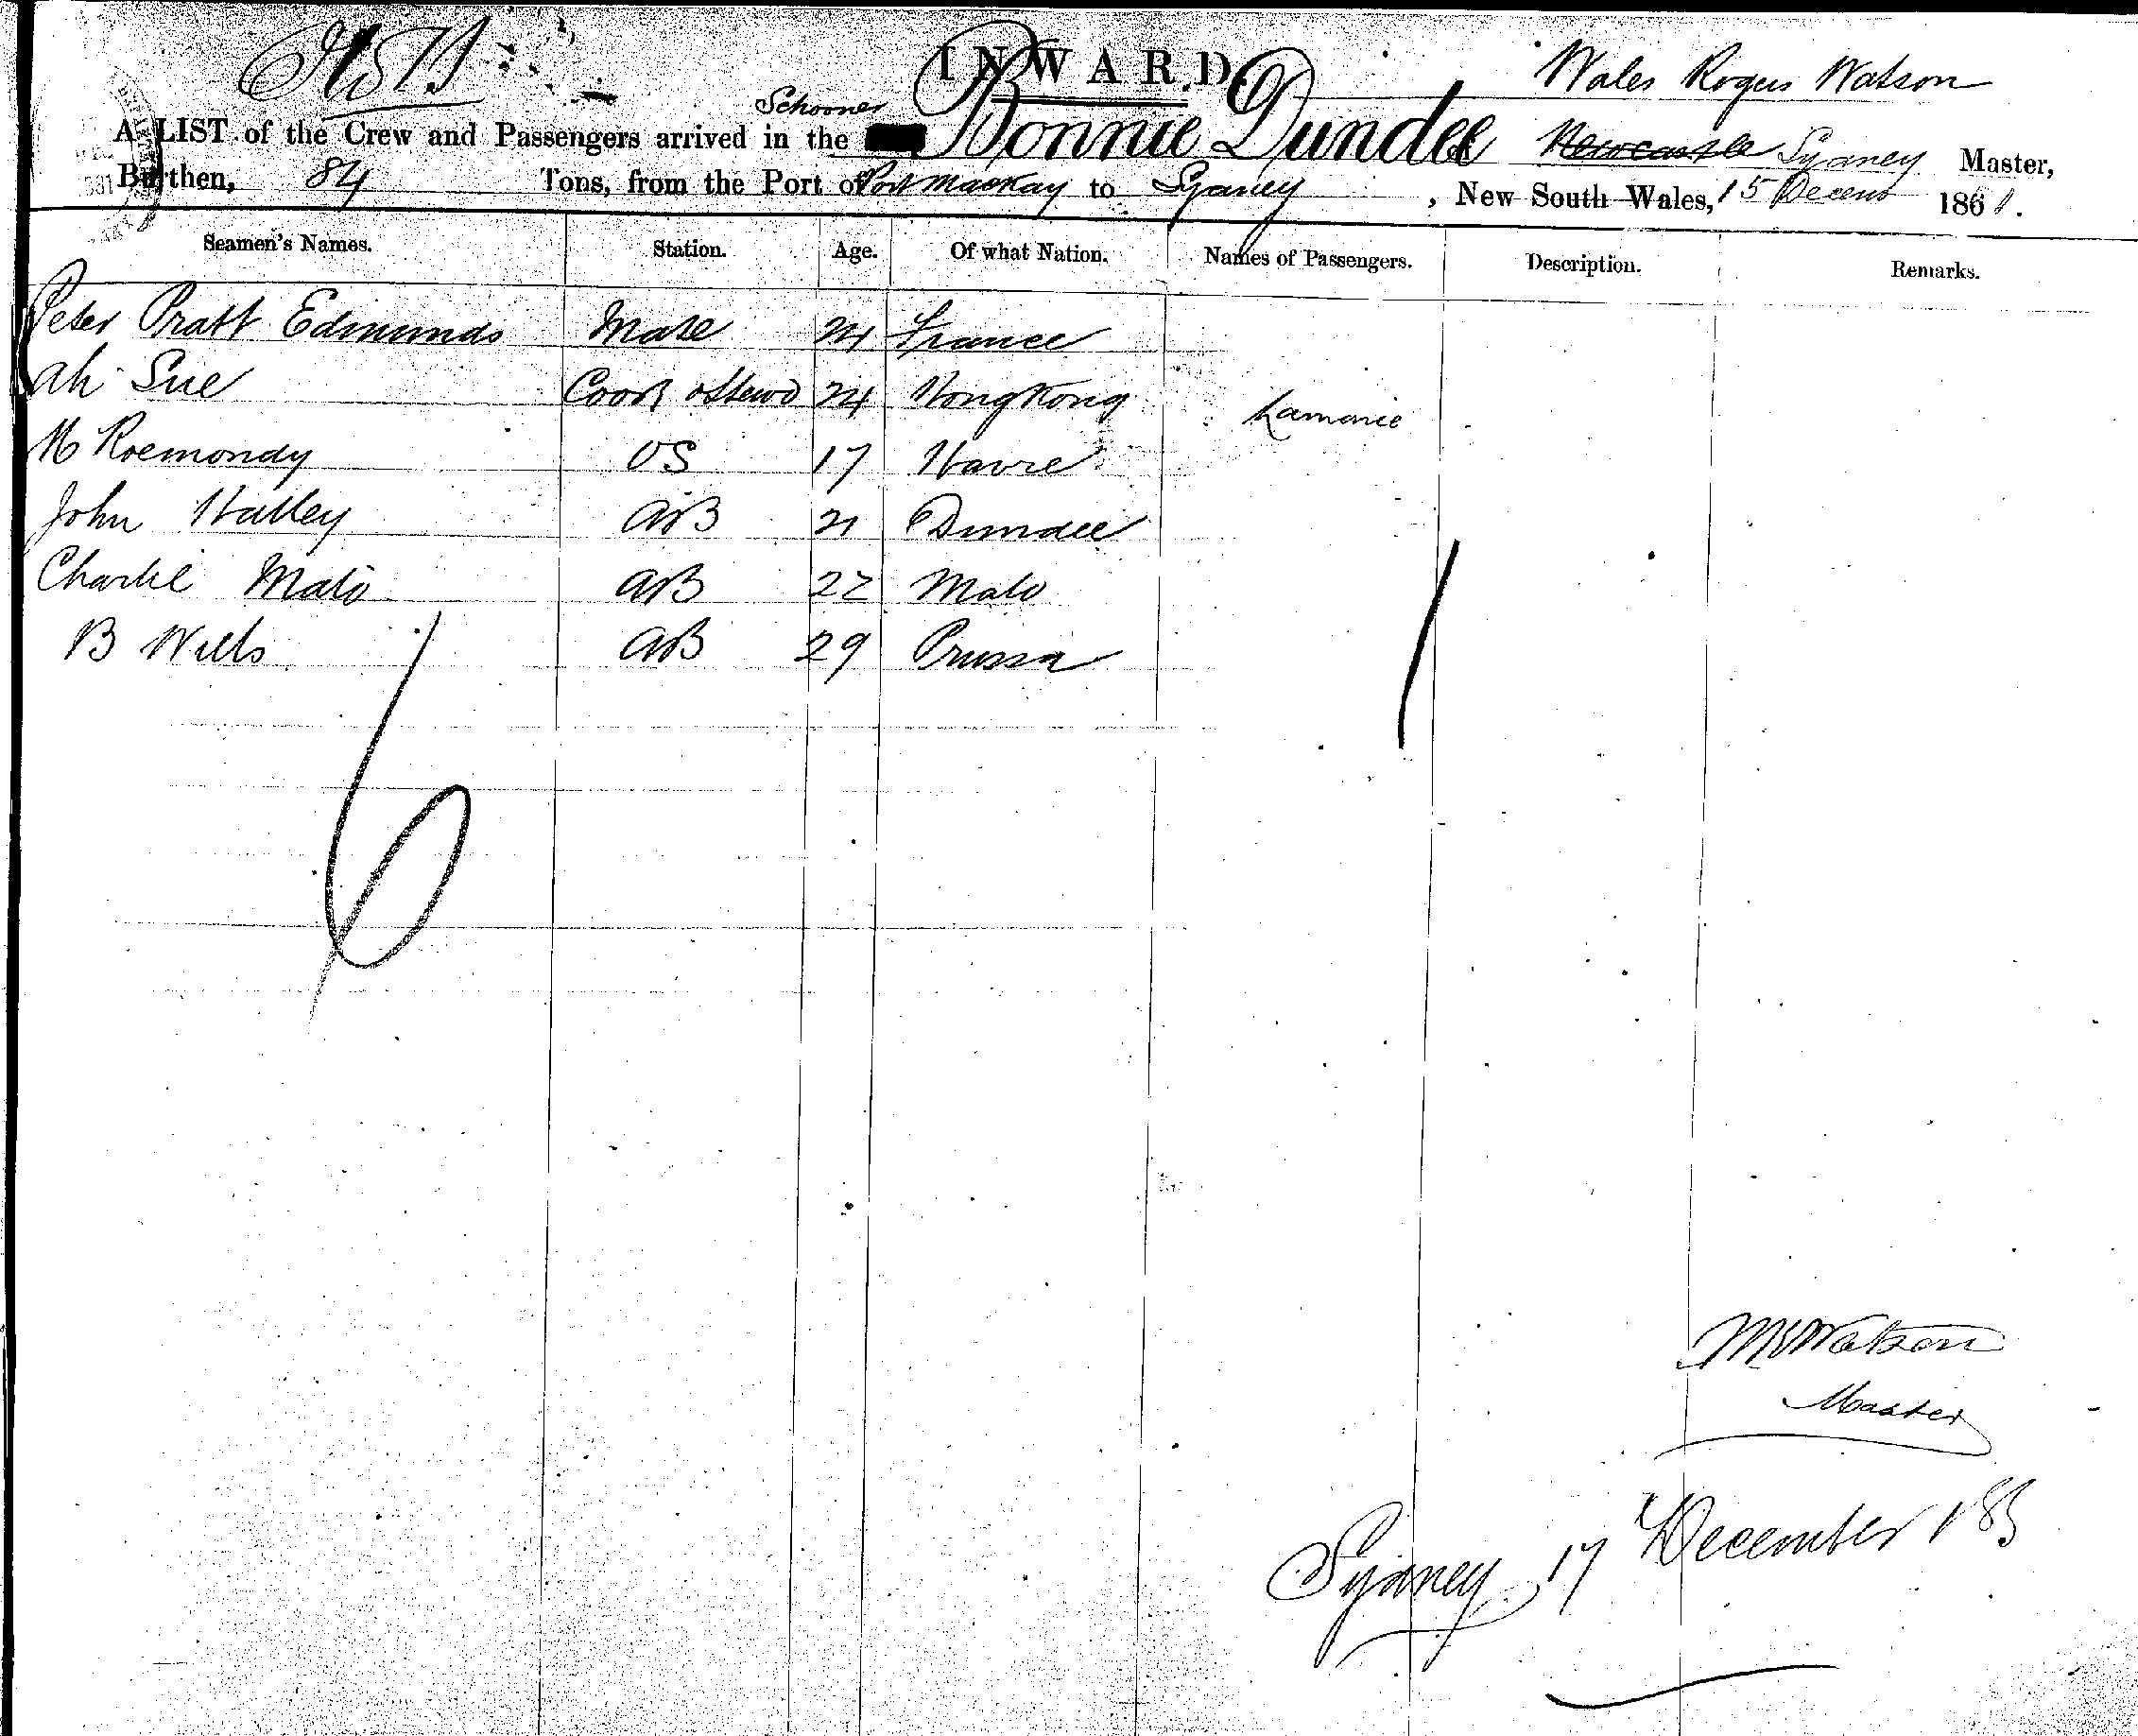 INWARD.
Schooner
Wales Rogers Watson
A LIST of the Crew and Passengers arrived in the Bonnie Dundee of Newcastle Sydney Master,
Burthen, 84 Tons, from the Port of Port Mackay to Sydney, New South Wales, 15 Decem 1881.
Seamen's Names. Station. Age. Of what Nation. Names of Passengers. Description. Remarks.
Peter Pratt Edmunds Mate 24 France
Ah Sue Cook & Stewd 24 Hong Kong Lamonie
M Roemondy OS 17 Havre
John Halley AB 21 Dundee
Charlie Malo AB 22 Malo
B Wills AB 29 Prussa
6 1
Watson
Master
Sydney 17 December 188